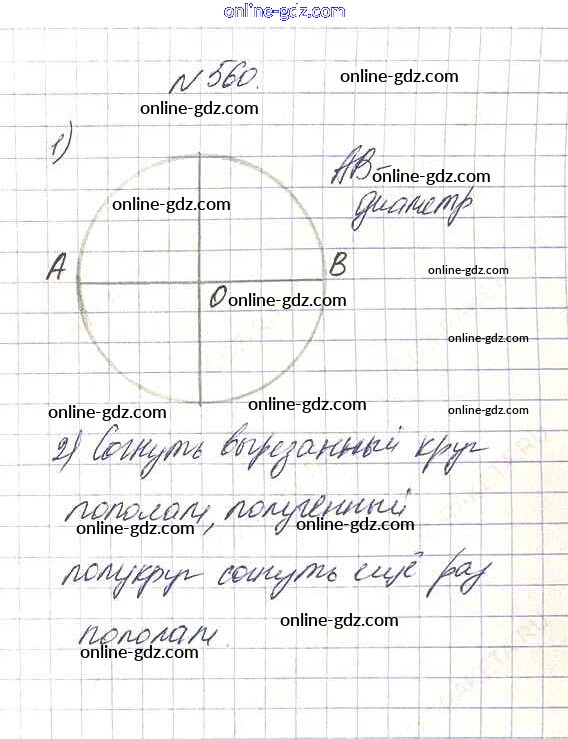 online-gdz.com
N 560.
online-gdz.com
online-gdz.com
1)
AB-
диаметр
online-gdz.com
online-gdz.com
A
B
online-gdz.com
O
online-gdz.com
online-gdz.com
online-gdz.com
online-gdz.com
online-gdz.com
2) Согнуть вырезанный круг
пополам, полученный
online-gdz.com
online-gdz.com
полукруг согнуть ещё раз
пополам.
online-gdz.com
online-gdz.com